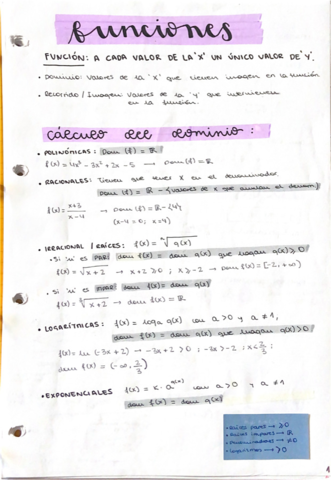 funciones
FUNCIÓN: A CADA VALOR DE LA "X" UN ÚNICO VALOR DE "Y".
· Dominio: Valores de la "x" que tienen imagen en la función
· Recorrido / Imagen: Valores de la "y" que intervienen
en la función.
cálculo del dominio:
• POLINÓMICAS: Dom (f) = ℝ
f(x) = 4x⁵ - 3x² + 2x - 5 → Dom (f) = ℝ
• RACIONALES: Tienen que tener x en el denominador
Dom (f) = ℝ - {valores de x que anulan el denom}
f(x) = x+3/x-4 → Dom (f) = ℝ - {4}
(x-4 = 0; x = 4)
• IRRACIONAL / RAÍCES: f(x) = ⁿ√g(x)
• Si "n" es PAR dom f(x) = dom g(x) que hagan g(x) ≥ 0
f(x) = √x+2 → x+2 ≥ 0 ; x ≥ -2 → Dom f(x) = [-2, +∞)
• Si "n" es IMPAR dom f(x) = dom g(x)
f(x) = ∛x+2 → dom f(x) = ℝ
• LOGARÍTMICAS: f(x) = loga g(x) con a > 0 y a ≠ 1,
dom f(x) = dom g(x) que hagan g(x) > 0
f(x) = ln (-3x + 2) → -3x + 2 > 0 ; -3x > -2 ; x < 2/3 ;
dom f(x) = (-∞, 2/3)
• EXPONENCIALES f(x) = K · a^g(x) con a > 0 y a ≠ 1
dom f(x) = dom g(x)
• Raíces pares → ≥ 0
• Raíces impares → ℝ
• Denominadores → ≠ 0
• Logaritmos → > 0